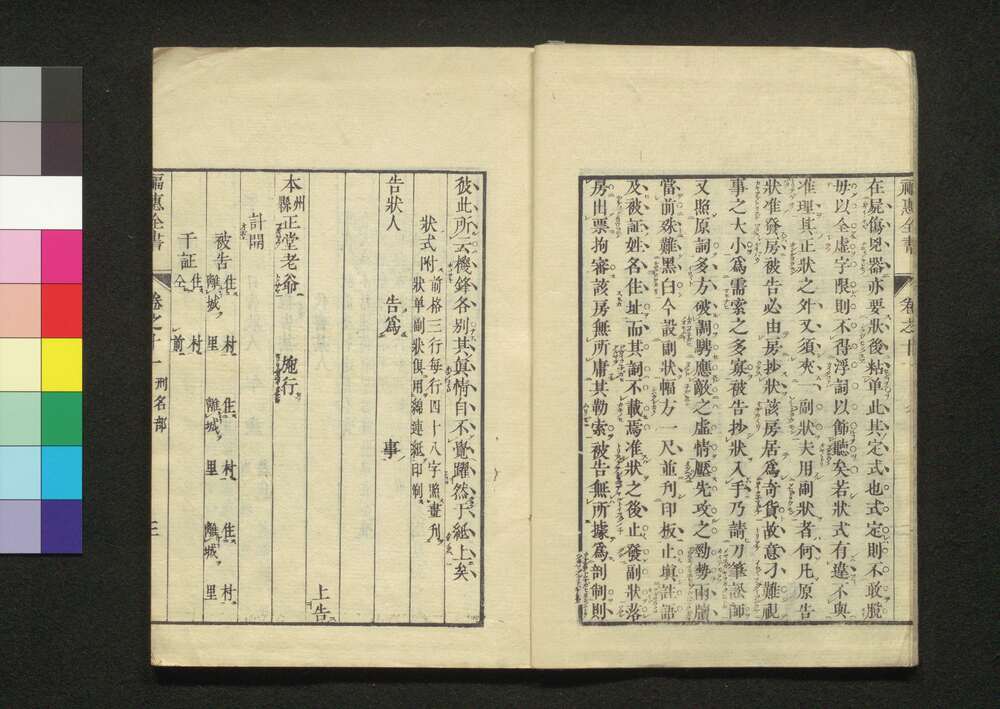 福惠全書 卷之十一
在屍傷兇器亦要狀後粘单此其定式也式定則不敢脫
毋以全虛字限則不得浮詞以飾聽矣若狀式有違不與
准理其正狀之外又須夾一副狀夫用副狀者何凡原告
狀准發房被告必由房抄狀該房居爲奇貨故意刁難視
事之大小爲需索之多寡被告抄狀入手乃請刀筆訟師
又照原詞多方破調騁應敵之虛情壓先攻之勁勢兩牘
當前殊難黑白今設副狀幅方一尺並刋印板止塡註語
及被証姓名住址而其詞不載焉准狀之後止發副狀落
房出票拘審該房無所庸其勒索被告無所據爲剖制則
彼此所云機鋒各别其眞情自不覺躍然于紙上矣
狀式附 前格三行每行四十八字照畫刋
狀单副狀俱用綿連紙印刷
告狀人 告爲 事
上告
本州縣正堂老爺 施行
計開
被告 住 村 離城 里 住 村 離城 里 住 村 離城 里
干証 住 村 仝 前
福惠全書 卷之十一 刑名部 三